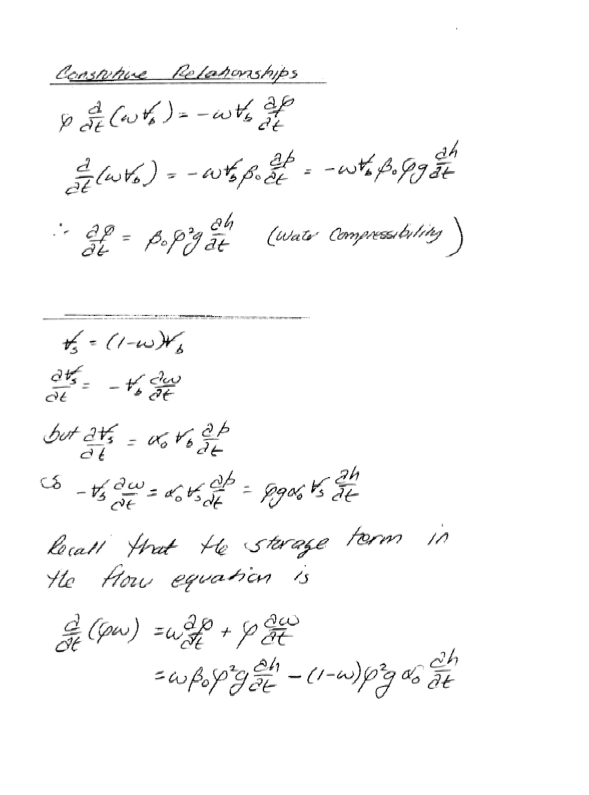 Constitutive Relationships
φ ∂/∂t (ωV̶_b) = -ωV̶_b ∂φ/∂t
∂/∂t (ωV̶_b) = -ωV̶_b β₀ ∂p/∂t = -ωV̶_b β₀φg ∂h/∂t
∴ ∂φ/∂t = β₀φ²g ∂h/∂t (Water Compressibility)
V̶_s = (1-ω)V̶_b
∂V̶_s/∂t = -V̶_b ∂ω/∂t
but ∂V̶_s/∂t = α₀ V̶_b ∂p/∂t
so -V̶_b ∂ω/∂t = α₀V̶_s ∂p/∂t = φgα₀ V̶_s ∂h/∂t
Recall that the storage term in
the flow equation is
∂/∂t (φω) = ω ∂φ/∂t + φ ∂ω/∂t
= ωβ₀φ²g ∂h/∂t - (1-ω)φ²g α₀ ∂h/∂t